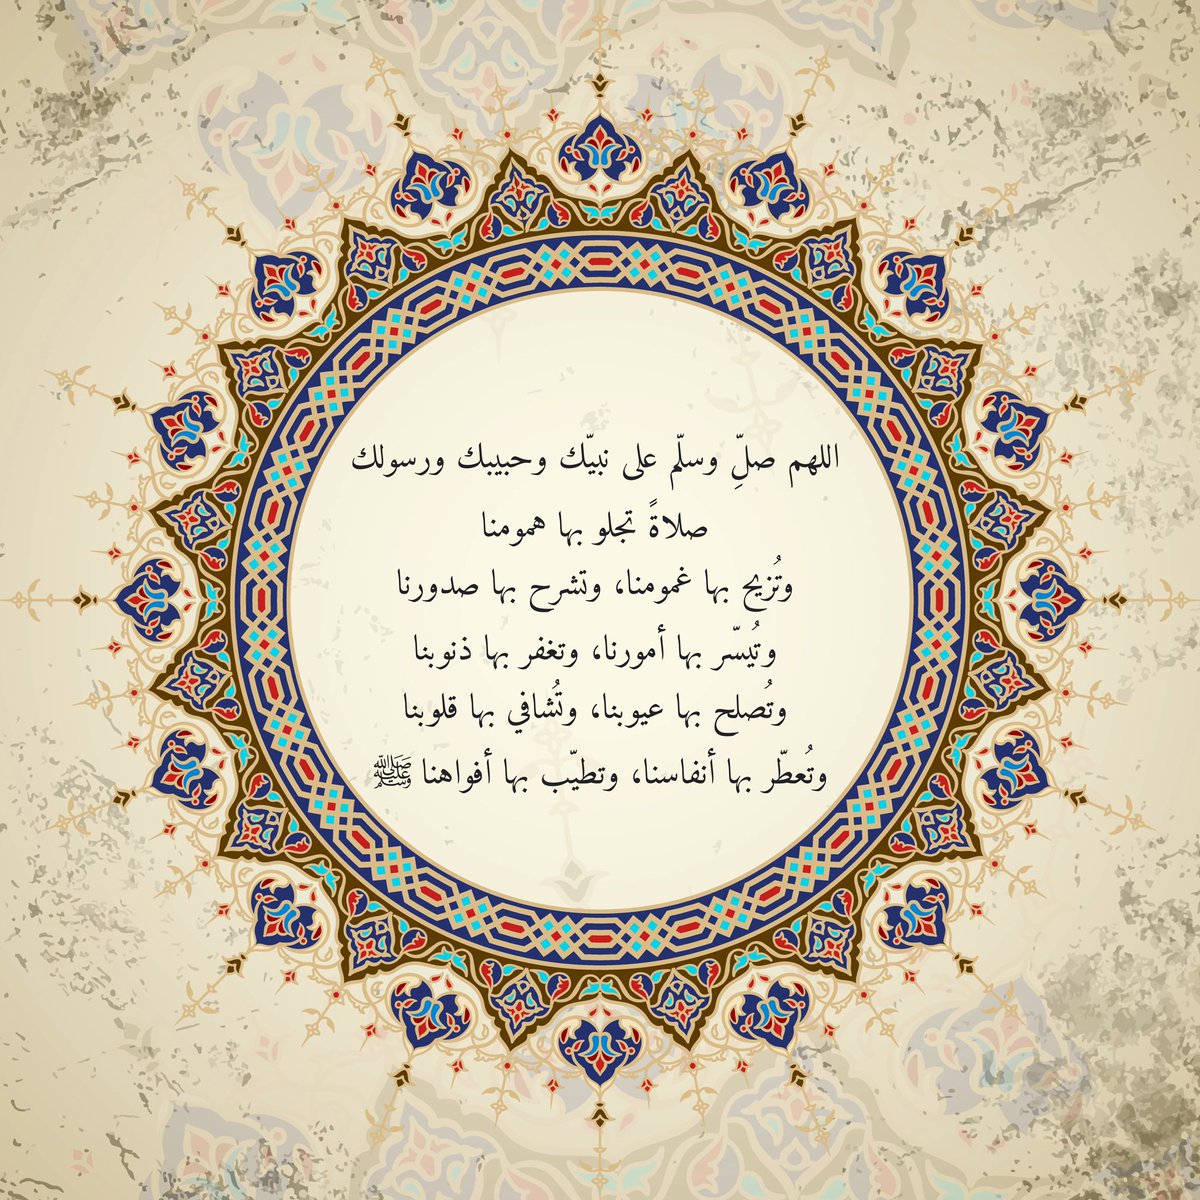 اللهم صلِّ وسلّم على نبيّك وحبيبك ورسولك
صلاةً تجلو بها همومنا
وتُزيح بها غمومنا، وتشرح بها صدورنا
وتُيسّر بها أمورنا، وتغفر بها ذنوبنا
وتُصلح بها عيوبنا، وتُشافي بها قلوبنا
وتُعطّر بها أنفاسنا، وتطيّب بها أفواهنا ﷺ